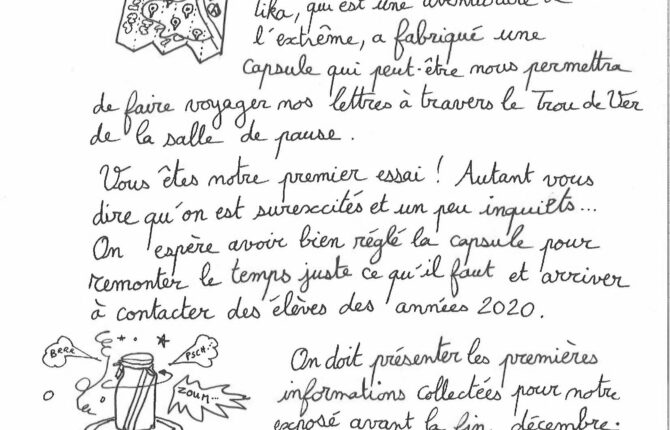 lika, qui est une aventurière de
l'extrême, a fabriqué une
capsule qui peut-être nous permettra
de faire voyager nos lettres à travers le Trou de Ver
de la salle de pause.
Vous êtes notre premier essai ! Autant vous
dire qu'on est surexcités et un peu inquiets...
On espère avoir bien réglé la capsule pour
remonter le temps juste ce qu'il faut et arriver
à contacter des élèves des années 2020.
BRRR
PSCH..
ZOUM...
On doit présenter les premières
informations collectées pour notre
exposé avant la fin décembre.